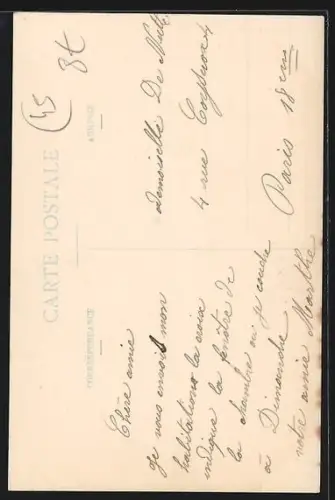 45
8€
CARTE POSTALE
CORRESPONDANCE
ADRESSE
Chère amie
Je vous envois mon
habitation la croix
indique la fenêtre de
la chambre ou je couche
à Dimanche
votre amie Marthe
demoiselle De
4 rue Coysevox 4
Paris 18 em